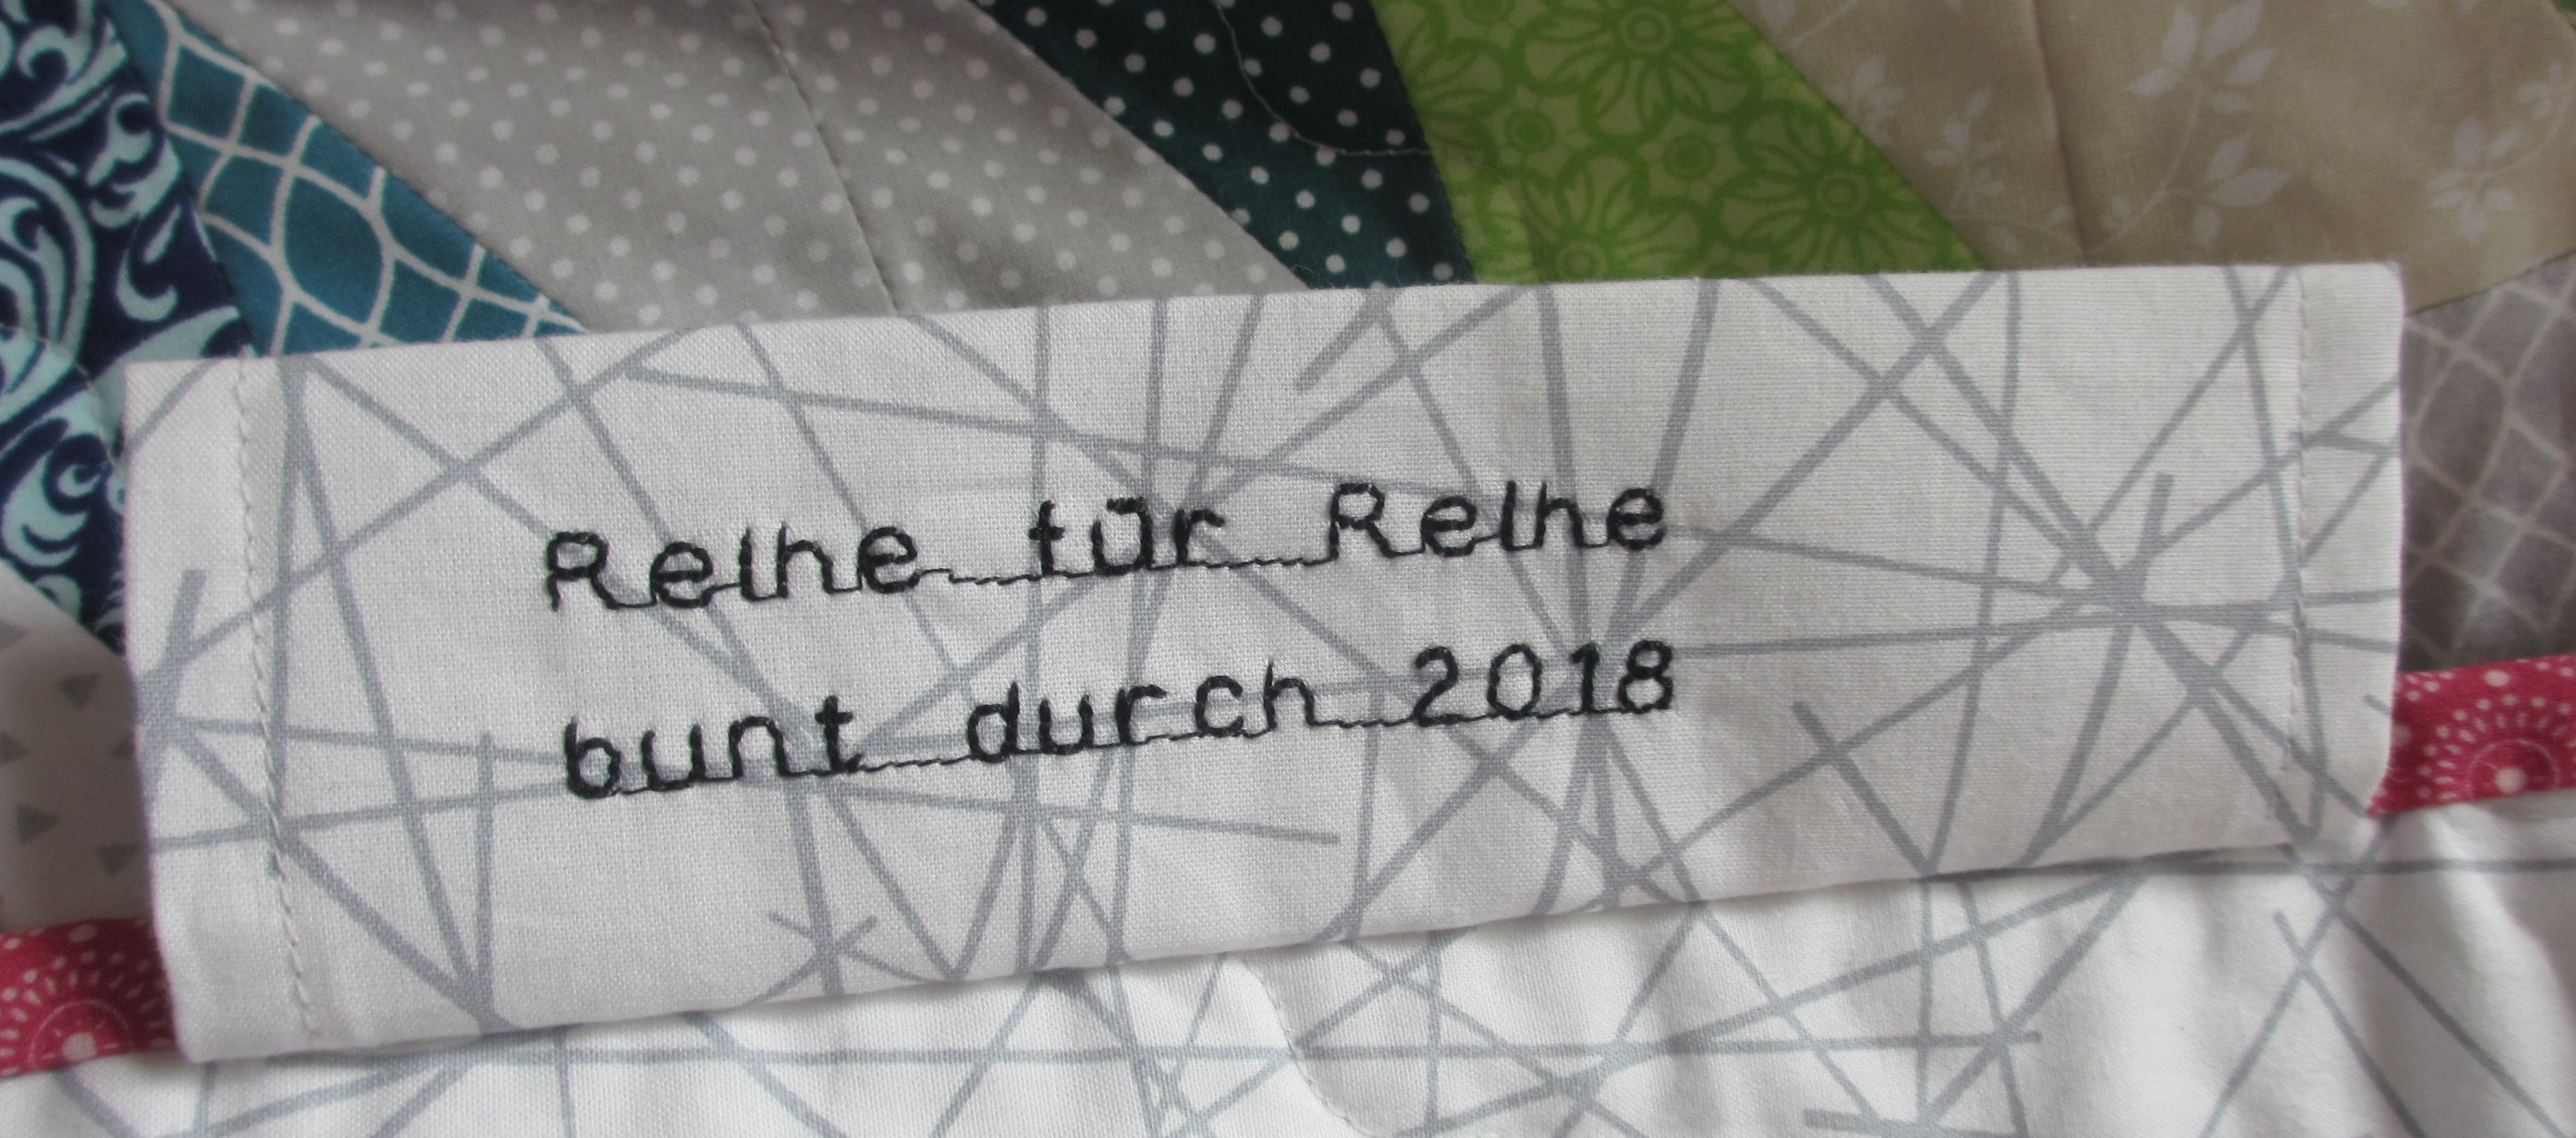 Reihe für Reihe
bunt durch 2018